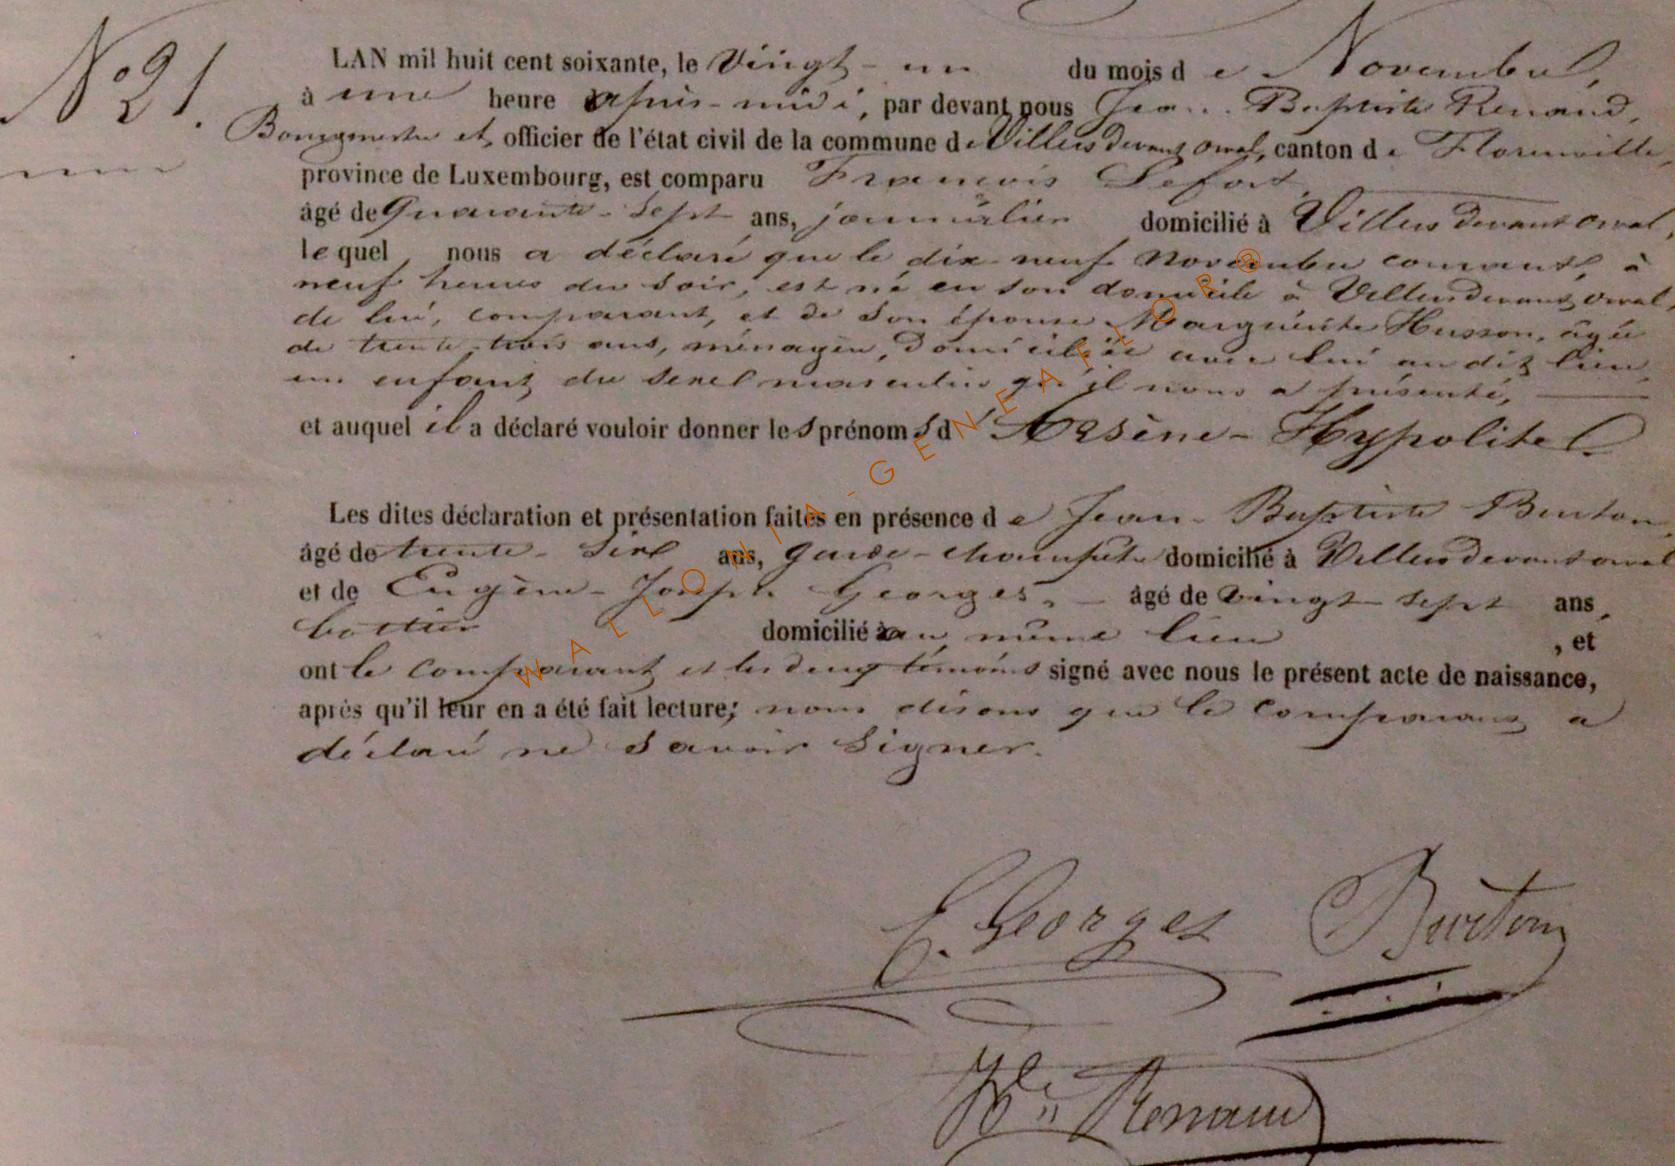 N° 21.
LAN mil huit cent soixante, le Vingt-un du mois de Novembre,
à une heure après-midi, par devant nous Jean Baptiste Renaud,
Bourgmestre et officier de l'état civil de la commune de Villers devant orval, canton de Florenville,
province de Luxembourg, est comparu François Lefort
âgé de Quarante-Sept ans, journalier domicilié à Villers devant orval,
lequel nous a déclaré que le dix neuf Novembre courant, à
neuf heures du soir, est né en son domicile à Villers devant orval,
de lui, comparant, et de Son épouse Marguérite Husson, âgée
de trente-trois ans, ménagère, domiciliée avec lui au dit lieu,
un enfant du sexe masculin qu'il nous a présenté,
et auquel il a déclaré vouloir donner les prénoms d'Arsène-Hypolite
Les dites déclaration et présentation faites en présence de Jean-Baptiste Burton,
âgé de trente-six ans, garde-champêtre domicilié à Villers devant orval
et de Eugène-Joseph Georges, âgé de vingt-sept ans,
bottier domicilié au même lieu, et
ont le comparant et les deux témoins signé avec nous le présent acte de naissance,
après qu'il leur en a été fait lecture; nous disons que le comparant a
déclaré ne Savoir Signer.
E. Georges Burton
Renaud
WALLONIA-GENEAFLOR®